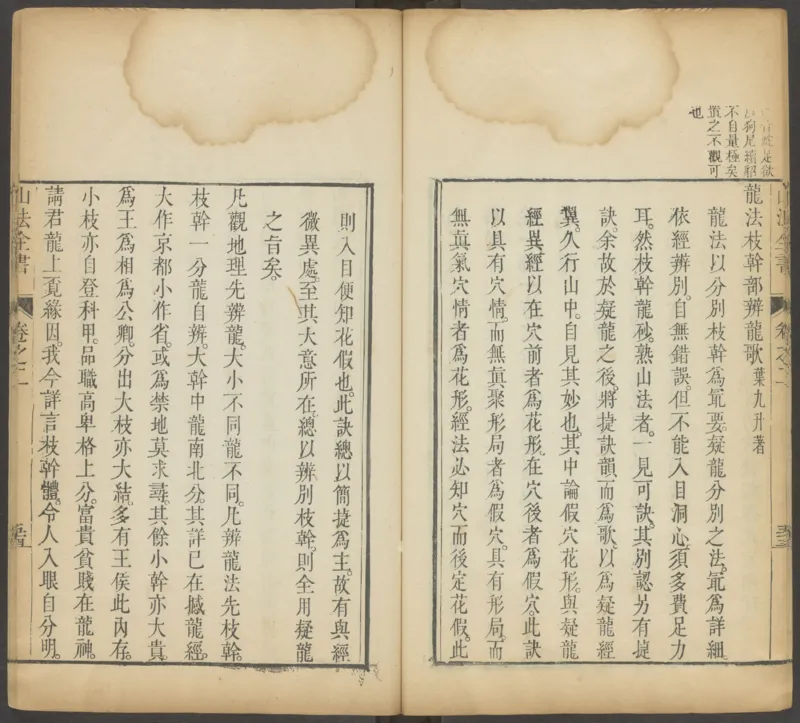 以狗尾續貂
不自量極矣
置之不觀可
也
山法全書
卷之二
龍法枝幹部辨龍歌 葉九升著
龍法以分別枝幹爲冣要。疑龍分別之法。冣爲詳細。
依經辨別。自無錯誤。但不能入目洞心。須多費足力
耳。然枝幹龍砂。熟山法者。一見可訣。其別認另有捷
訣。余故於疑龍之後。將捷訣韻而爲歌。以爲疑龍經
翼。久行山中。自見其妙也。其中論假穴花形。與疑龍
經異。經以在穴前者爲花形。在穴後者爲假穴。此訣
以具有穴情。而無眞聚形局者爲假穴。具有形局。而
無眞氣穴情者爲花形。經法必知穴而後定花假。此
則入目便知花假也。此訣總以簡捷爲主。故有與經
微異處。至其大意所在。總以辨別枝幹。則全用疑龍
之旨矣。
凡觀地理先辨龍。大小不同龍不同。凡辨龍法先枝幹。
枝幹一分龍自辨。大幹中龍南北分。其詳已在撼龍經。
大作京都小作省。或爲禁地莫求尋。其餘小幹亦大貴。
爲王爲相爲公卿。分出大枝亦大結。多有王侯此內存。
小枝亦自登科甲。品職高卑格上分。富貴貧賤在龍神。
請君龍上覔緣因。我今詳言枝幹體。令人入眼自分明。
山法全書
卷之二